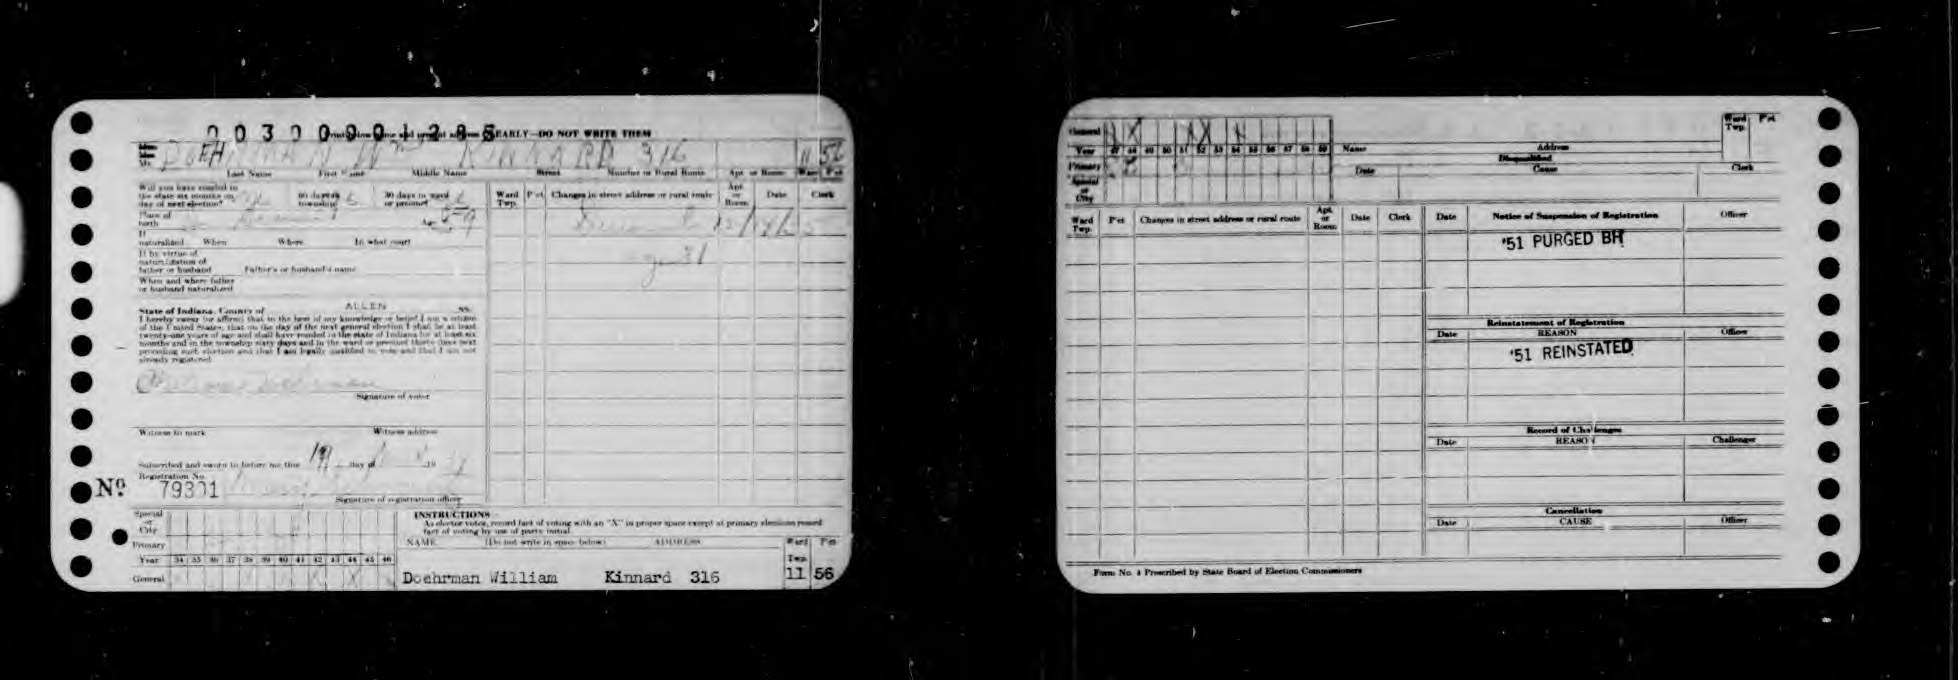 00300001286
EARLY—DO NOT WRITE THEM
DOEHRMAN WM KINNARD 316 11 56
Last Name First Name Middle Name Street Number or Rural Route Apt. or Room Ward P'ct
Will you have resided in
the state six months on 60 days in 30 days in ward
day of next election? township or precinct
Place of
birth
If
naturalized When Where In what court
If by virtue of
naturalization of
father or husband Father's or husband's name
When and where father
or husband naturalized
State of Indiana, County of ALLEN ss.
I hereby swear (or affirm) that to the best of my knowledge or belief I am a citizen
of the United States, that on the day of the next general election I shall be at least
twenty-one years of age and shall have resided in the state of Indiana for at least six
months and in the township sixty days and in the ward or precinct thirty days next
preceding such election and that I am legally qualified to vote and that I am not
already registered
Signature of voter
Witness to mark Witness address
Subscribed and sworn to before me this day of 19
Registration No.
No. 79301
Signature of registration officer
Ward Twp. P'ct Changes in street address or rural route Apt. or Room Date Clerk
Special
or
City
Primary
Year 34 35 36 37 38 39 40 41 42 43 44 45 46
General
INSTRUCTIONS
As elector votes, record fact of voting with an "X" in proper space except at primary elections record
fact of voting by use of party initial
NAME (Do not write in space below) ADDRESS Ward Twp. P'ct
Doehrman William Kinnard 316 11 56
General
Year 47 48 49 50 51 52 53 54 55 56 57 58 59
Primary
Special
or
City
Ward Twp. P'ct
Name Address
Disqualified
Date Cause Clerk
Ward Twp. P'ct Changes in street address or rural route Apt. or Room Date Clerk
Date Notice of Suspension of Registration Officer
'51 PURGED BH
Reinstatement of Registration
Date REASON Officer
'51 REINSTATED
Record of Challenges
Date REASON Challenger
Cancellation
Date CAUSE Officer
Form No. 4 Prescribed by State Board of Election Commissioners